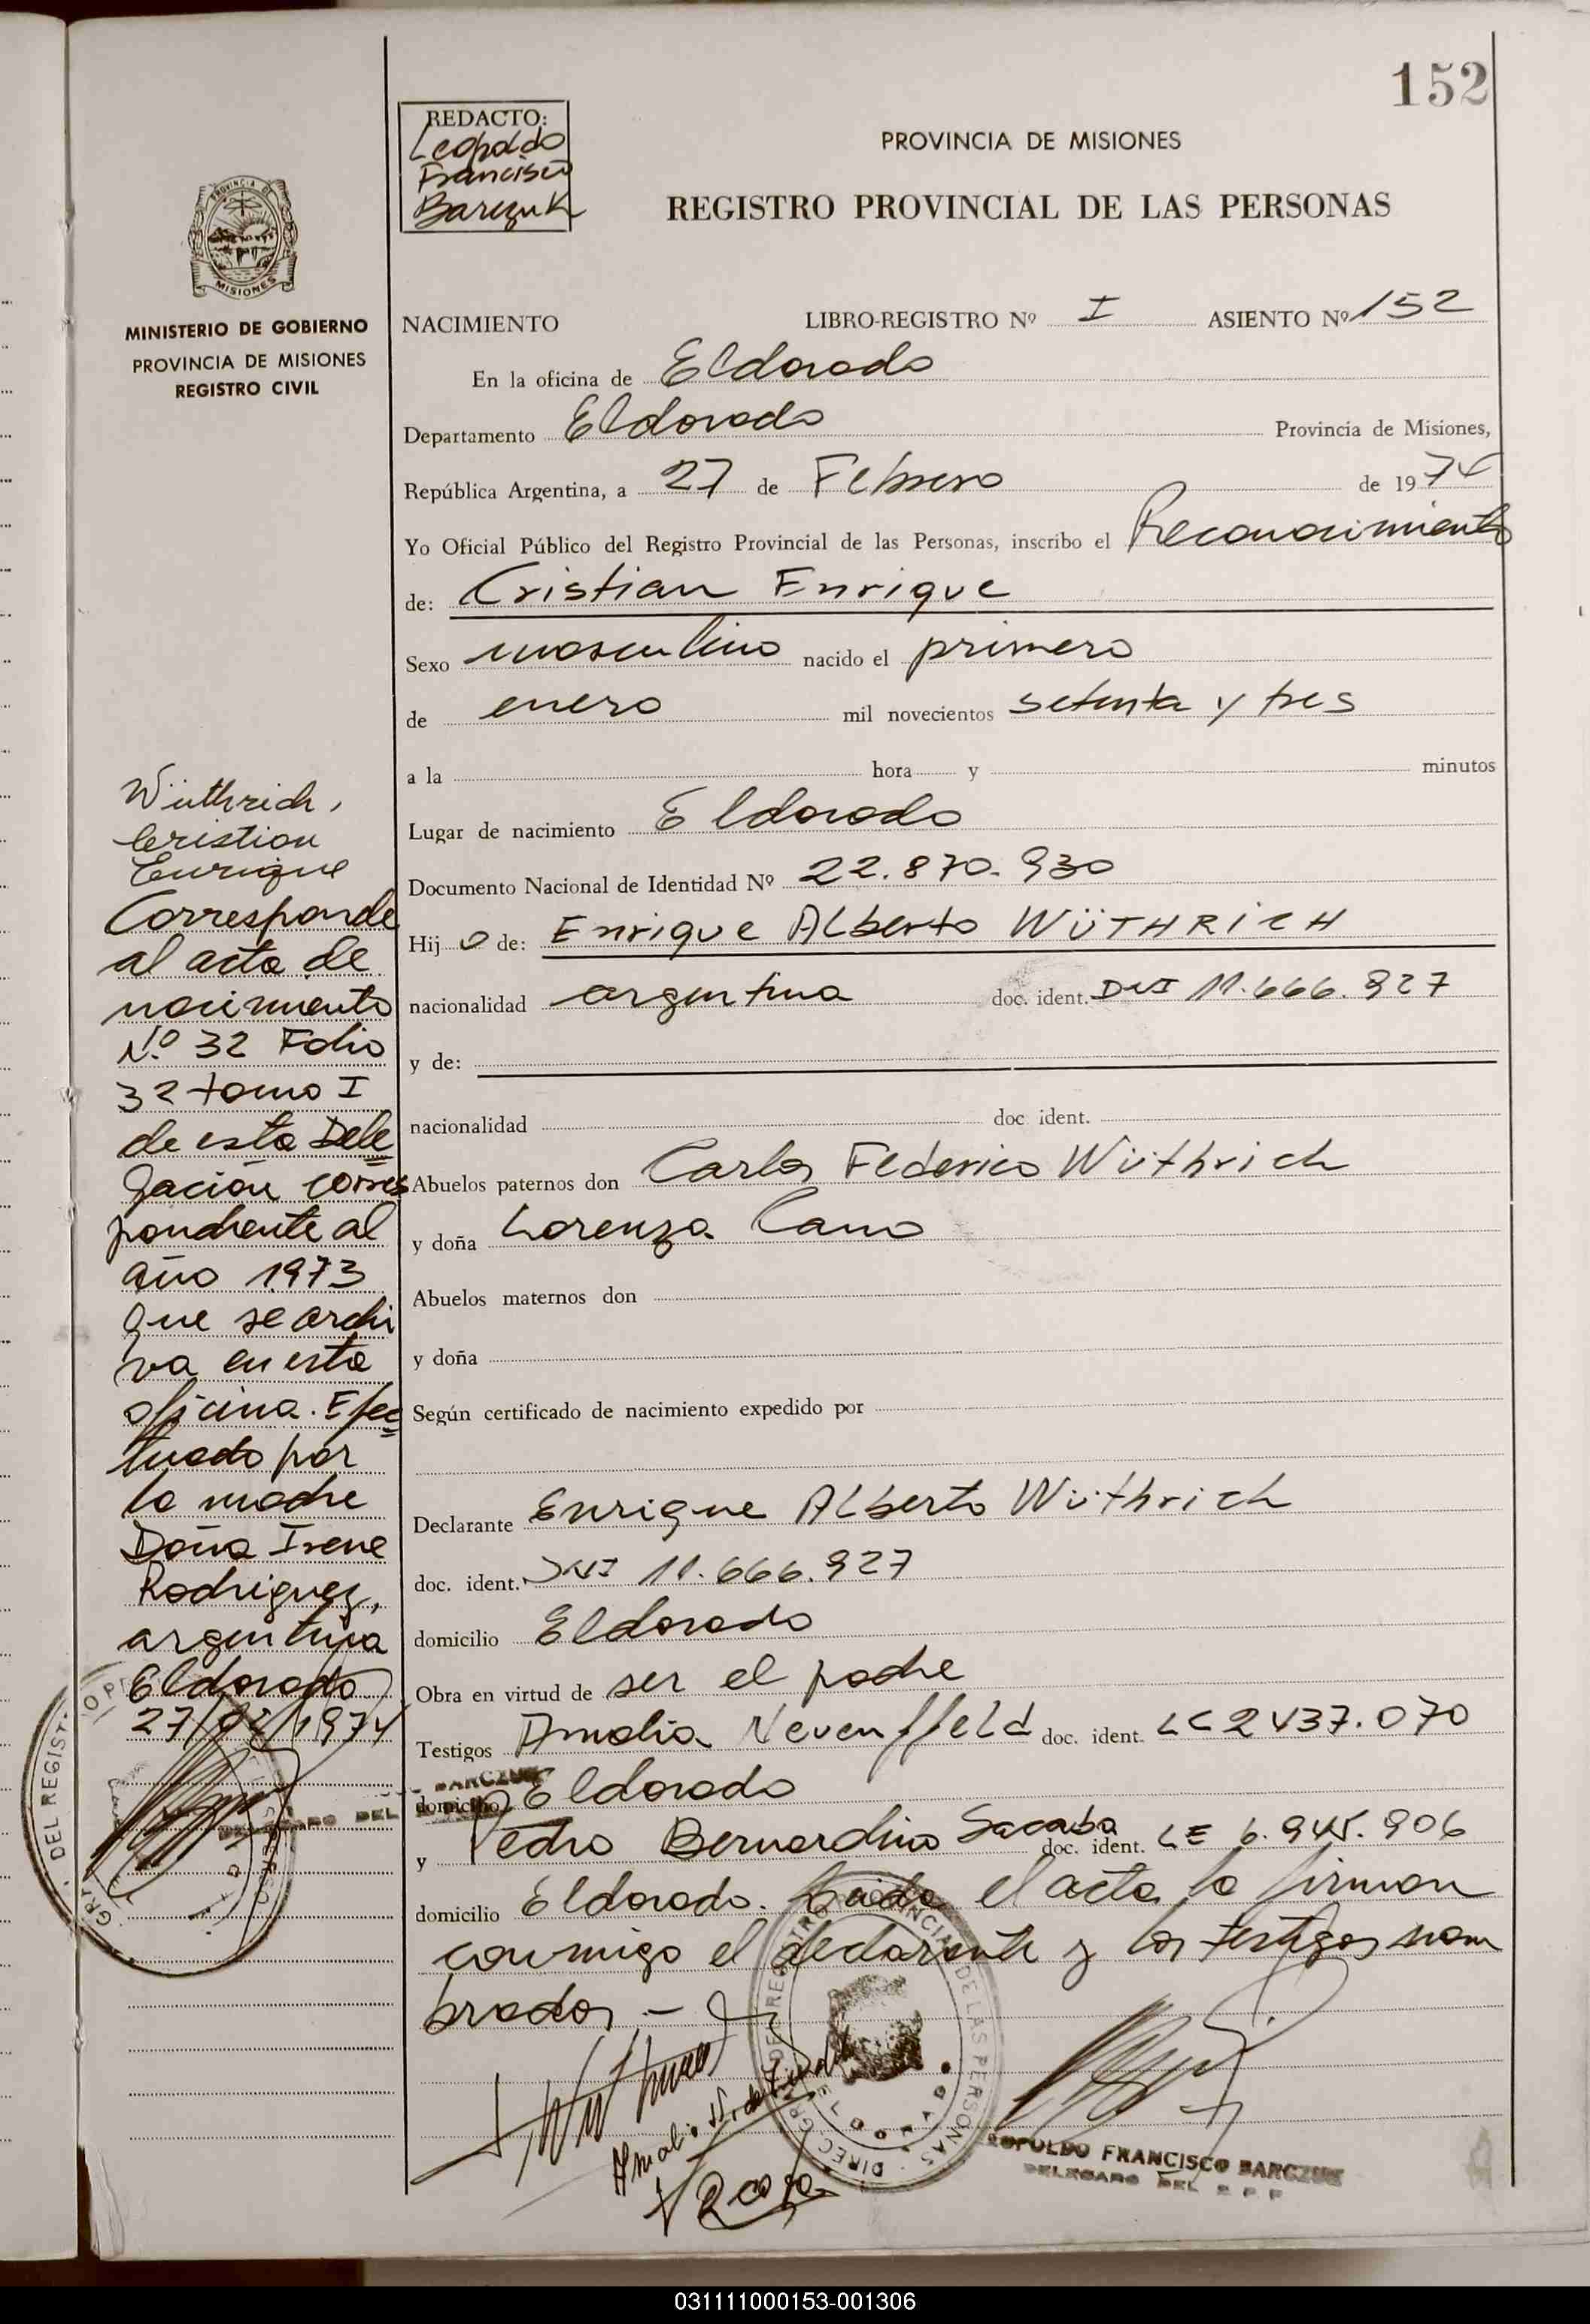 152
REDACTO:
Leopoldo
Francisco
Barczuk
PROVINCIA DE MISIONES
REGISTRO PROVINCIAL DE LAS PERSONAS
PROVINCIA DE
MISIONES
MINISTERIO DE GOBIERNO
PROVINCIA DE MISIONES
REGISTRO CIVIL
NACIMIENTO LIBRO-REGISTRO Nº I ASIENTO Nº 152
En la oficina de Eldorado
Departamento Eldorado Provincia de Misiones,
República Argentina, a 27 de Febrero de 1974
Yo Oficial Público del Registro Provincial de las Personas, inscribo el Reconocimiento
de: Cristian Enrique
Sexo masculino nacido el primero
de enero mil novecientos setenta y tres
a la hora y minutos
Lugar de nacimiento Eldorado
Documento Nacional de Identidad Nº 22.870.930
Hijo de: Enrique Alberto WÜTHRICH
nacionalidad argentina doc. ident. DNI 11.666.927
y de:
nacionalidad doc ident.
Abuelos paternos don Carlos Federico Wüthrich
y doña Lorenza Cano
Abuelos maternos don
y doña
Según certificado de nacimiento expedido por
Declarante Enrique Alberto Wüthrich
doc. ident. DNI 11.666.927
domicilio Eldorado
Obra en virtud de ser el padre
Testigos Amalia doc. ident. LC 2437.070
domicilio Eldorado
y Pedro Bernardino doc. ident. LE 6.945.906
domicilio Eldorado. Leida el acta la firman
conmigo el declarante y los testigos nom
brados -
Wüthrich,
Cristian
Enrique
Corresponde
al acta de
nacimiento
N.º 32 Folio
32 tomo I
de esta Dele
gación corres
pondiente al
año 1973
que se archi
va en esta
oficina. Efec
tuado por
la madre
Doña Irene
Rodriguez,
argentina
Eldorado
27/02/1974
LEOPOLDO FRANCISCO BARCZUK
DELEGADO DEL R P P
031111000153-001306